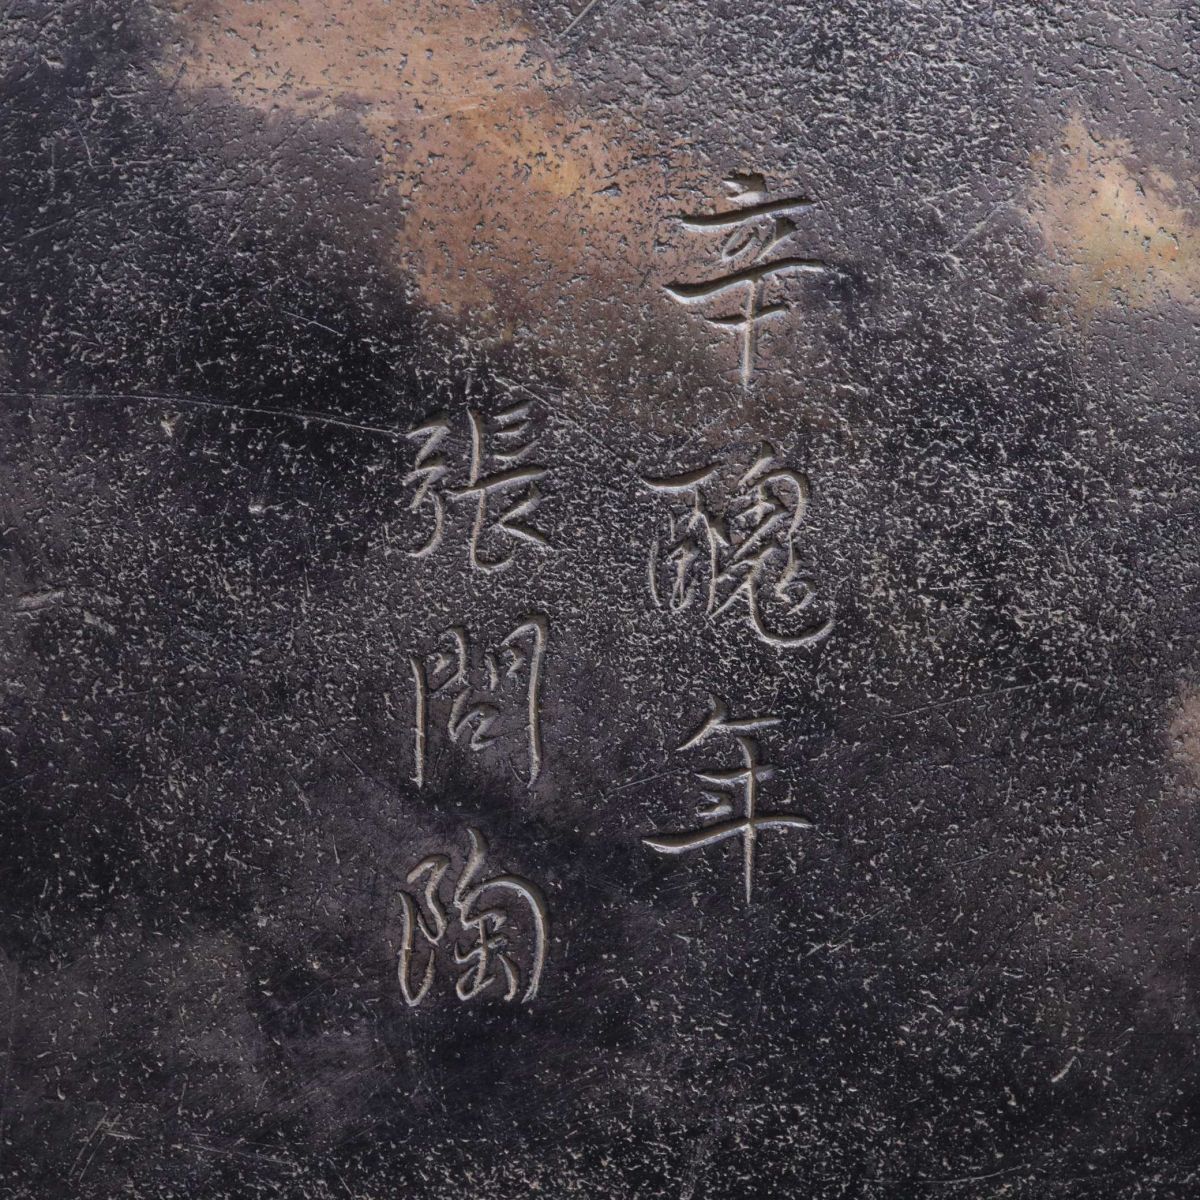 辛醜年
張問陶